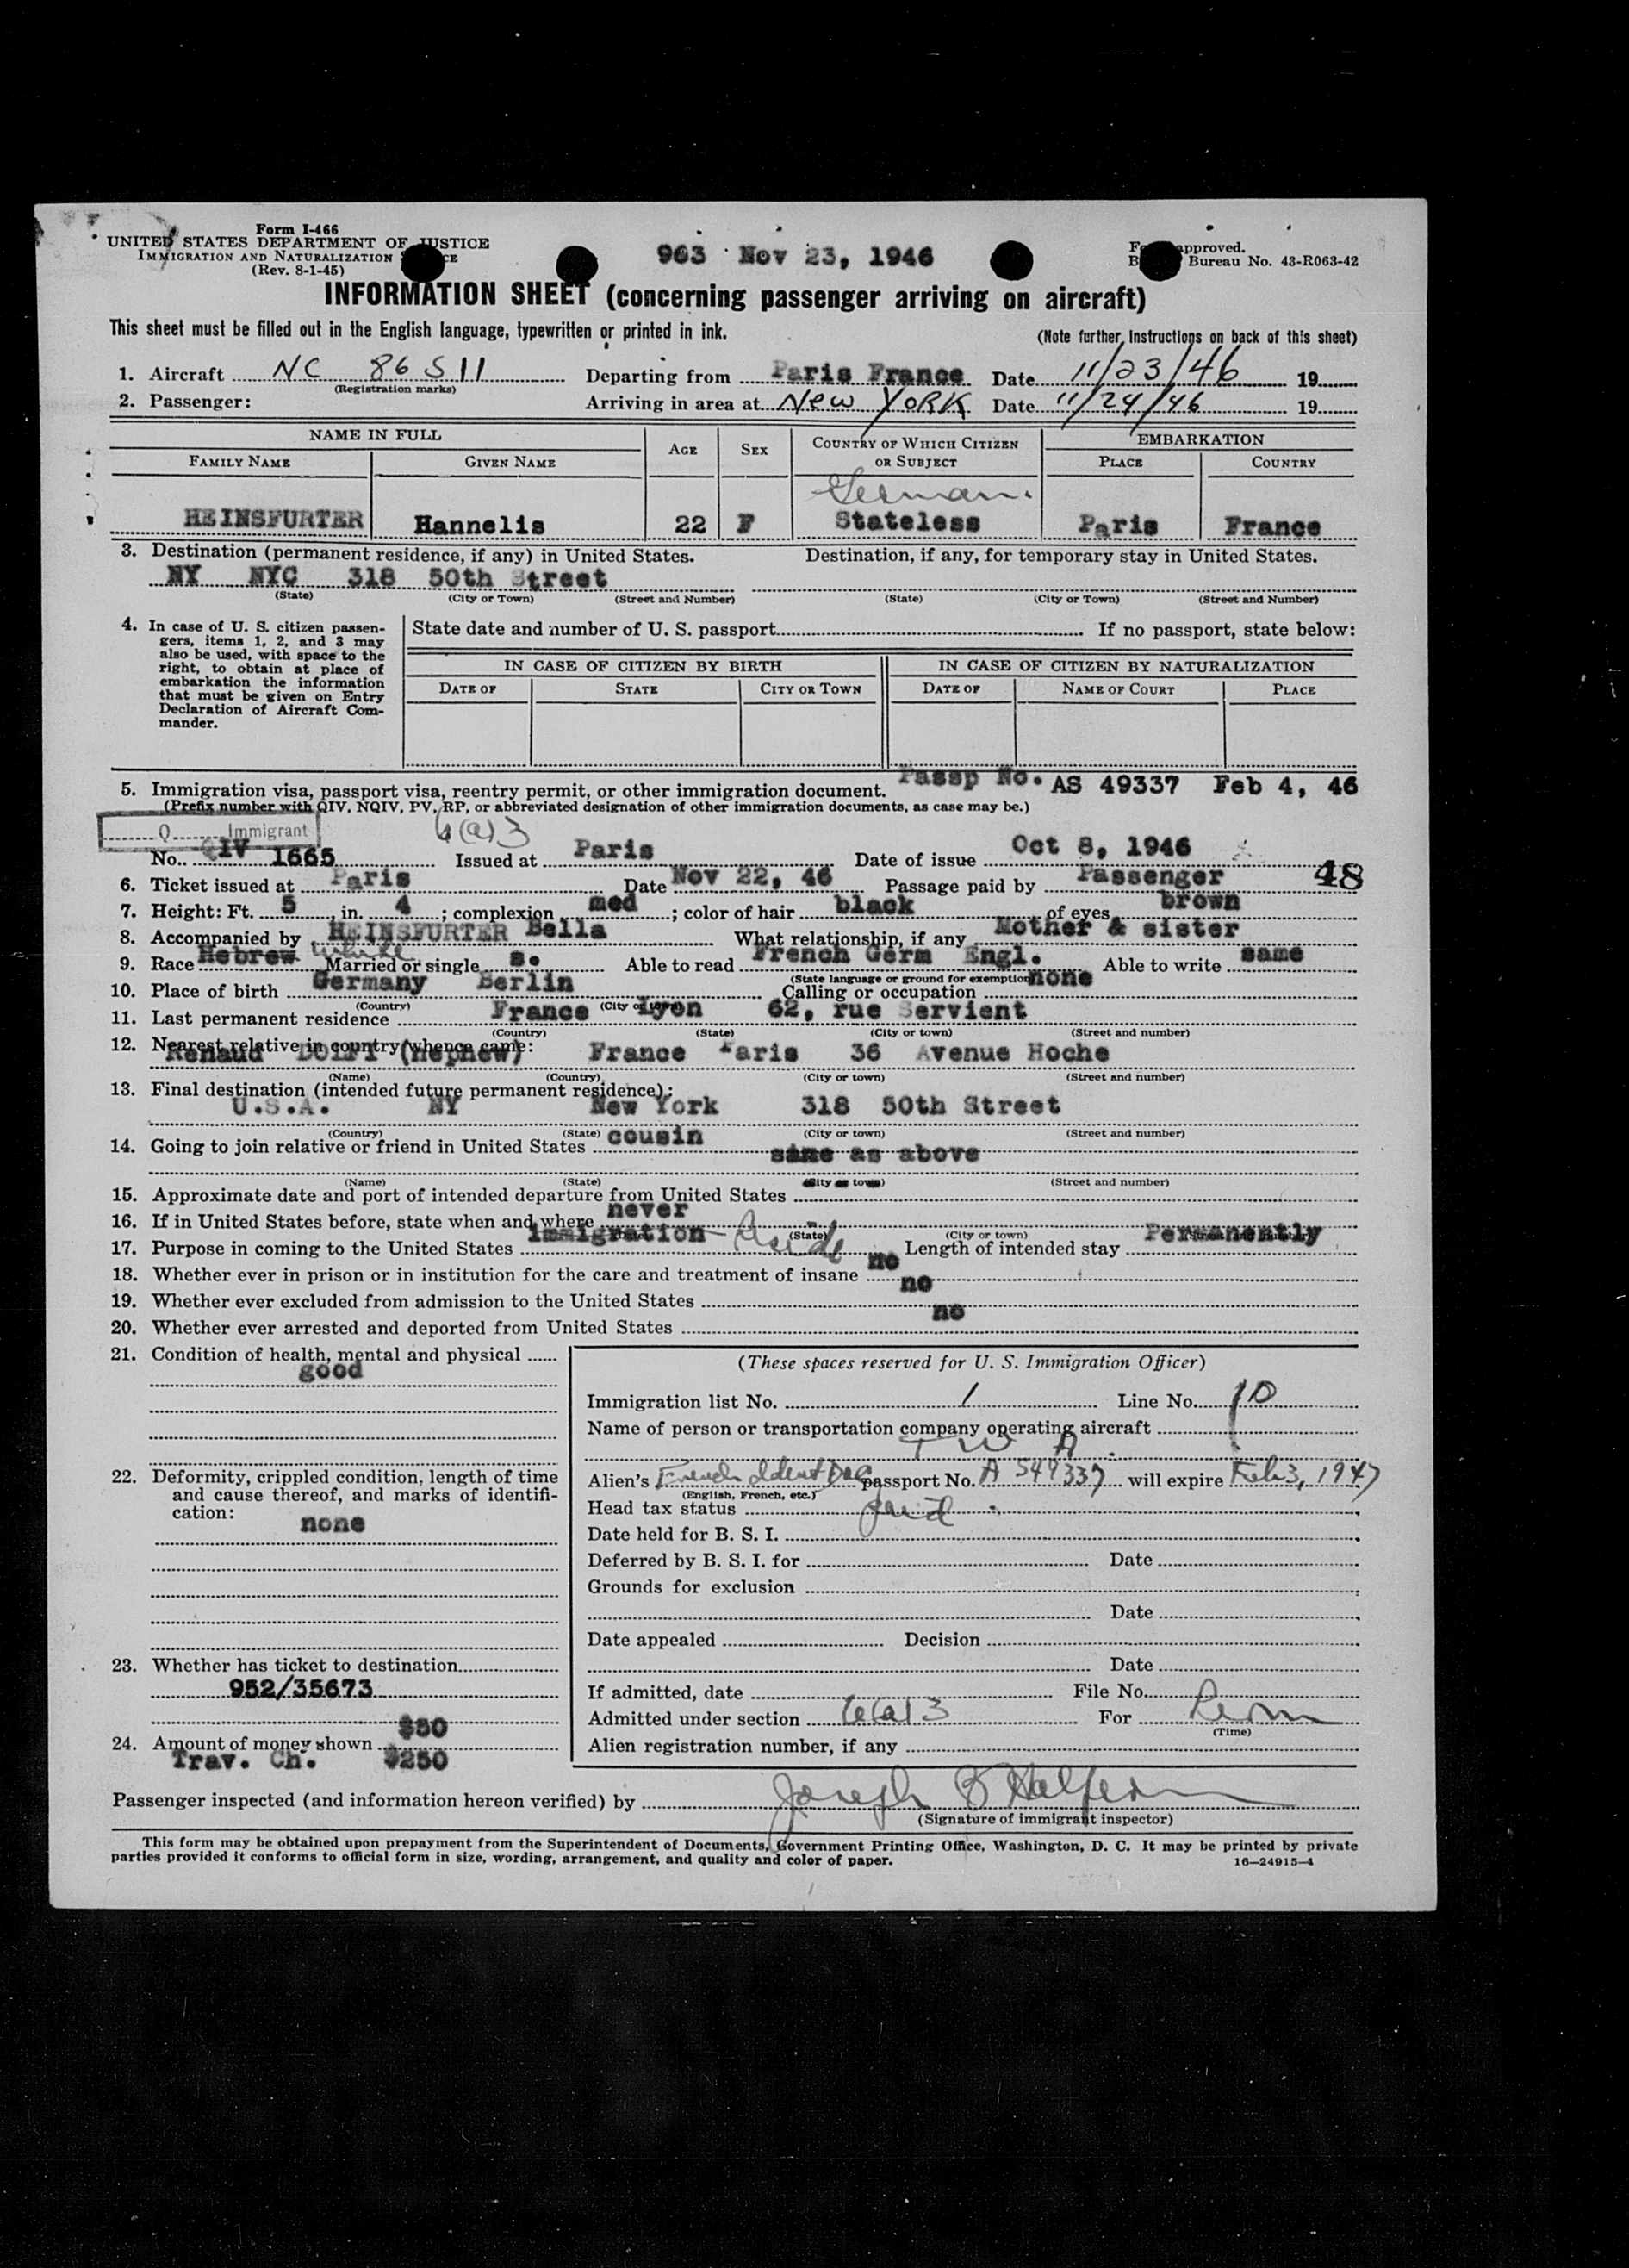 Form I-466
UNITED STATES DEPARTMENT OF JUSTICE
IMMIGRATION AND NATURALIZATION
(Rev. 8-1-45)
963 Nov 23, 1946
approved.
Bureau No. 43-R063-42
INFORMATION SHEET (concerning passenger arriving on aircraft)
This sheet must be filled out in the English language, typewritten or printed in ink.
(Note further Instructions on back of this sheet)
1. Aircraft NC 86511 Departing from Paris France Date 11/23/46 19
(Registration marks)
2. Passenger: Arriving in area at New YORK Date 11/24/46 19
NAME IN FULL AGE SEX COUNTRY OF WHICH CITIZEN OR SUBJECT EMBARKATION
FAMILY NAME GIVEN NAME PLACE COUNTRY
German.
HEINSFURTER Hannelis 22 F Stateless Paris France
3. Destination (permanent residence, if any) in United States. Destination, if any, for temporary stay in United States.
NY NYC 318 50th Street
(State) (City or Town) (Street and Number) (State) (City or Town) (Street and Number)
4. In case of U. S. citizen passen-
gers, items 1, 2, and 3 may
also be used, with space to the
right, to obtain at place of
embarkation the information
that must be given on Entry
Declaration of Aircraft Com-
mander.
State date and number of U. S. passport If no passport, state below:
IN CASE OF CITIZEN BY BIRTH IN CASE OF CITIZEN BY NATURALIZATION
DATE OF STATE CITY OR TOWN DATE OF NAME OF COURT PLACE
5. Immigration visa, passport visa, reentry permit, or other immigration document. Passp No. AS 49337 Feb 4, 46
(Prefix number with QIV, NQIV, PV, RP, or abbreviated designation of other immigration documents, as case may be.)
Q Immigrant 6(a)3
No. QIV 1665 Issued at Paris Date of issue Oct 8, 1946
6. Ticket issued at Paris Date Nov 22, 46 Passage paid by Passenger 48
7. Height: Ft. 5 in. 4 ; complexion med ; color of hair black of eyes brown
8. Accompanied by HEINSFURTER Bella What relationship, if any Mother & sister
9. Race Hebrew White Married or single s. Able to read French Germ Engl. Able to write same
(State language or ground for exemption)
10. Place of birth Germany Berlin Calling or occupation none
(Country) (City or town)
11. Last permanent residence France Lyon 62, rue Servient
(Country) (State) (City or town) (Street and number)
12. Nearest relative in country whence came:
Renaud DOLFI (nephew) France Paris 36 Avenue Hoche
(Name) (Country) (City or town) (Street and number)
13. Final destination (intended future permanent residence):
U.S.A. NY New York 318 50th Street
(Country) (State) (City or town) (Street and number)
14. Going to join relative or friend in United States cousin same as above
(Name) (State) (City or town) (Street and number)
15. Approximate date and port of intended departure from United States
16. If in United States before, state when and where never
(State) (City or town)
17. Purpose in coming to the United States immigration - Reside Length of intended stay Permanently
18. Whether ever in prison or in institution for the care and treatment of insane no
19. Whether ever excluded from admission to the United States no
20. Whether ever arrested and deported from United States no
21. Condition of health, mental and physical
good
22. Deformity, crippled condition, length of time
and cause thereof, and marks of identifi-
cation:
none
23. Whether has ticket to destination
952/35673
$50
24. Amount of money shown
Trav. Ch. $250
(These spaces reserved for U. S. Immigration Officer)
Immigration list No. 1 Line No. 10
Name of person or transportation company operating aircraft
T W A.
Alien's French Ident Doc passport No. A S49337 will expire Feb 3, 1947
(English, French, etc.)
Head tax status paid
Date held for B. S. I.
Deferred by B. S. I. for Date
Grounds for exclusion
Date
Date appealed Decision
Date
If admitted, date File No.
Admitted under section 6(a)3 For Perm
(Time)
Alien registration number, if any
Passenger inspected (and information hereon verified) by Joseph B Halpern
(Signature of immigrant inspector)
This form may be obtained upon prepayment from the Superintendent of Documents, Government Printing Office, Washington, D. C. It may be printed by private
parties provided it conforms to official form in size, wording, arrangement, and quality and color of paper.
16—24915-4